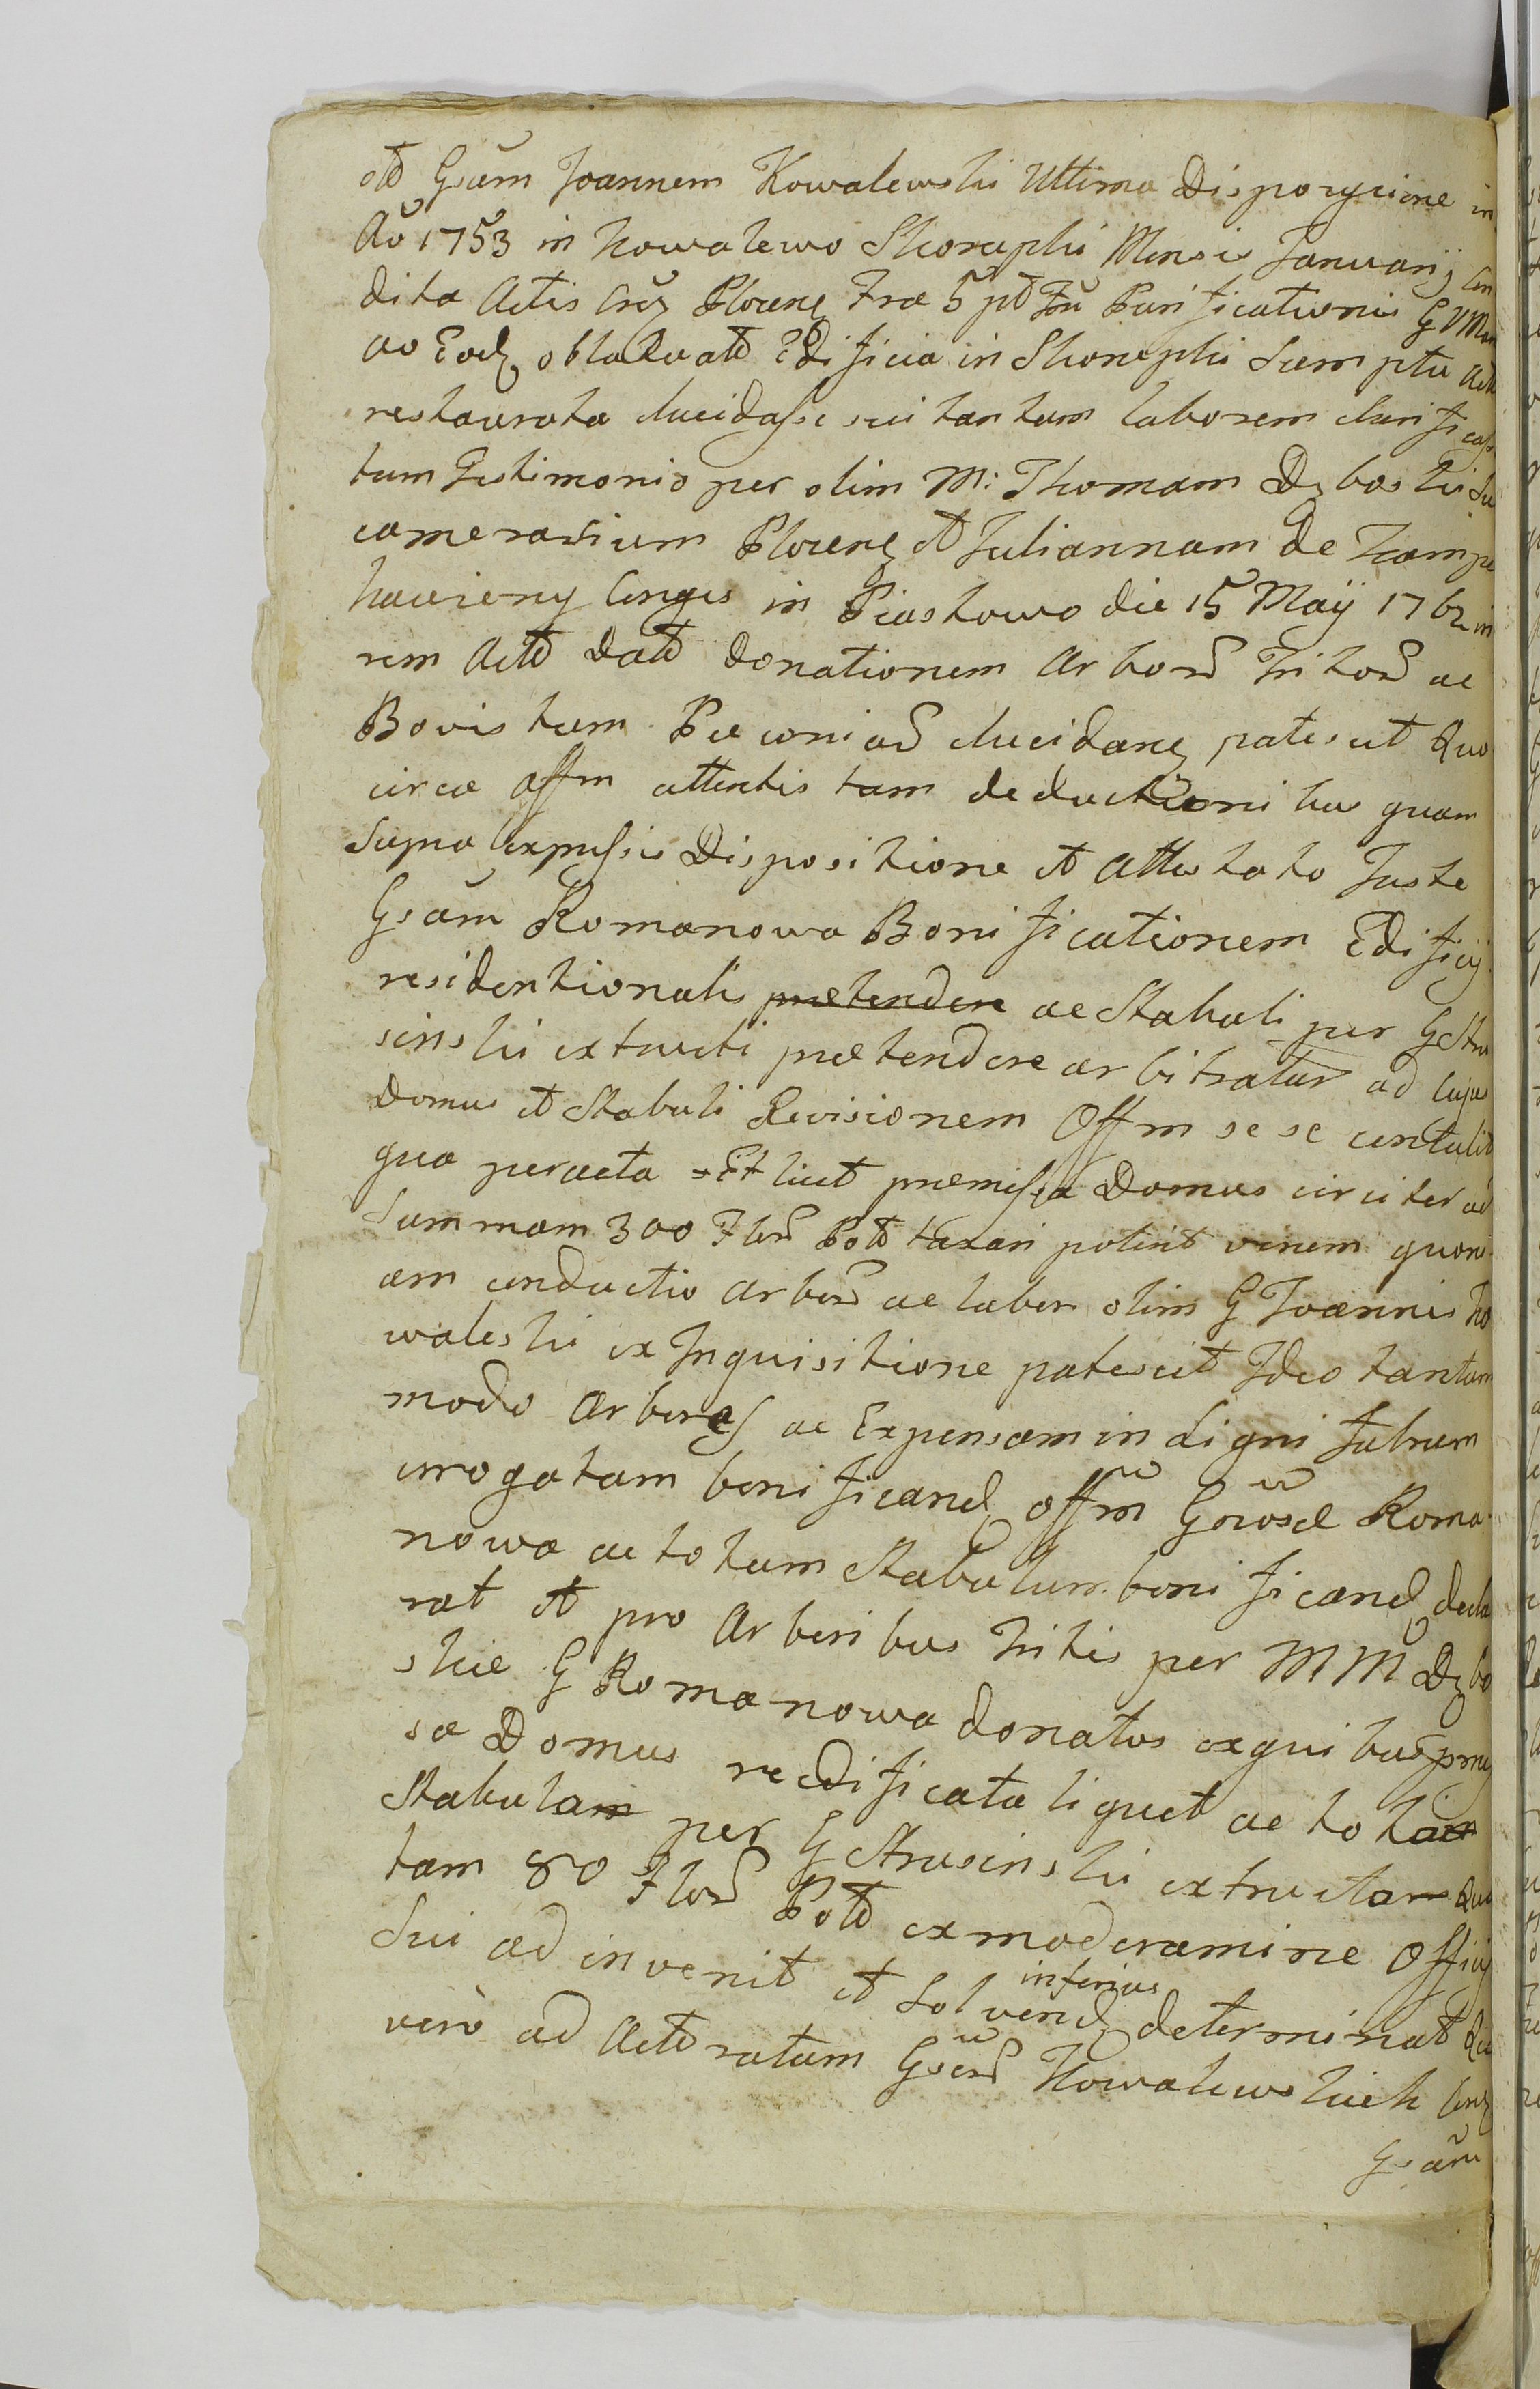 olð Gsům Joannem Kowalewski Ultima Disposycione in
Aõ 1753 in Kowalewo Skorupki Mensis Januarij Con
dita Actis Crz Plocenz Frae 5 pt Ftu Purificationis GVM
ao Eodz oblata ałð Edificia in Skorupki Sumptu
restaurata elucidasse sui tantum laborem clarificass
tum Testimonio per olim M: Thomam Dzboski Su
camerarium Plocenz et Juliannam de
Conges in Piastowo die 15 Maij 1762 in
rem Actð Datð donationem Arborũ Tritorũ ac
Bovis tum Pecuniarũ elucidanz patescit Quo
circa Offm attentis tam deductionibus quam
Supra expressis Dispositione et Attestato Juste
Gsãm Romanowa Bonificationem Edificij
residentionalis praetendere ac Stabuli per G Stru
sinski extructi praetendere arbitratur ad cujus
Domus et Stabuli Revisionem Offm sese contulit
qua peracta Et licet praemissa Domus circiter ad
Summam 300 Flor Polð taxari potuit verum quoni
am conductio Arborũ ac labor olim G Joannis Ko
waleski ex Inquisitione patescit Ideo tantum
modo Arbores ac Expensam in Ligni fabrum
erogatam bonificandz offm Gnrosae Roma
nowa ac totum Stabulum bonificandz decla
rat et pro Arboribus Tritis per MM Dzbo
skie G Romanowa donatos ex quibus prmis
sa Domus reedificata liquet ac
per G Strusinski
tam 80 Flor Polð ex moderamine Officij
Sui ad invenit et Solvendz inferius determinat
vero ad Actoratum Gsorũ Kowalewskich Conz
Gsãm